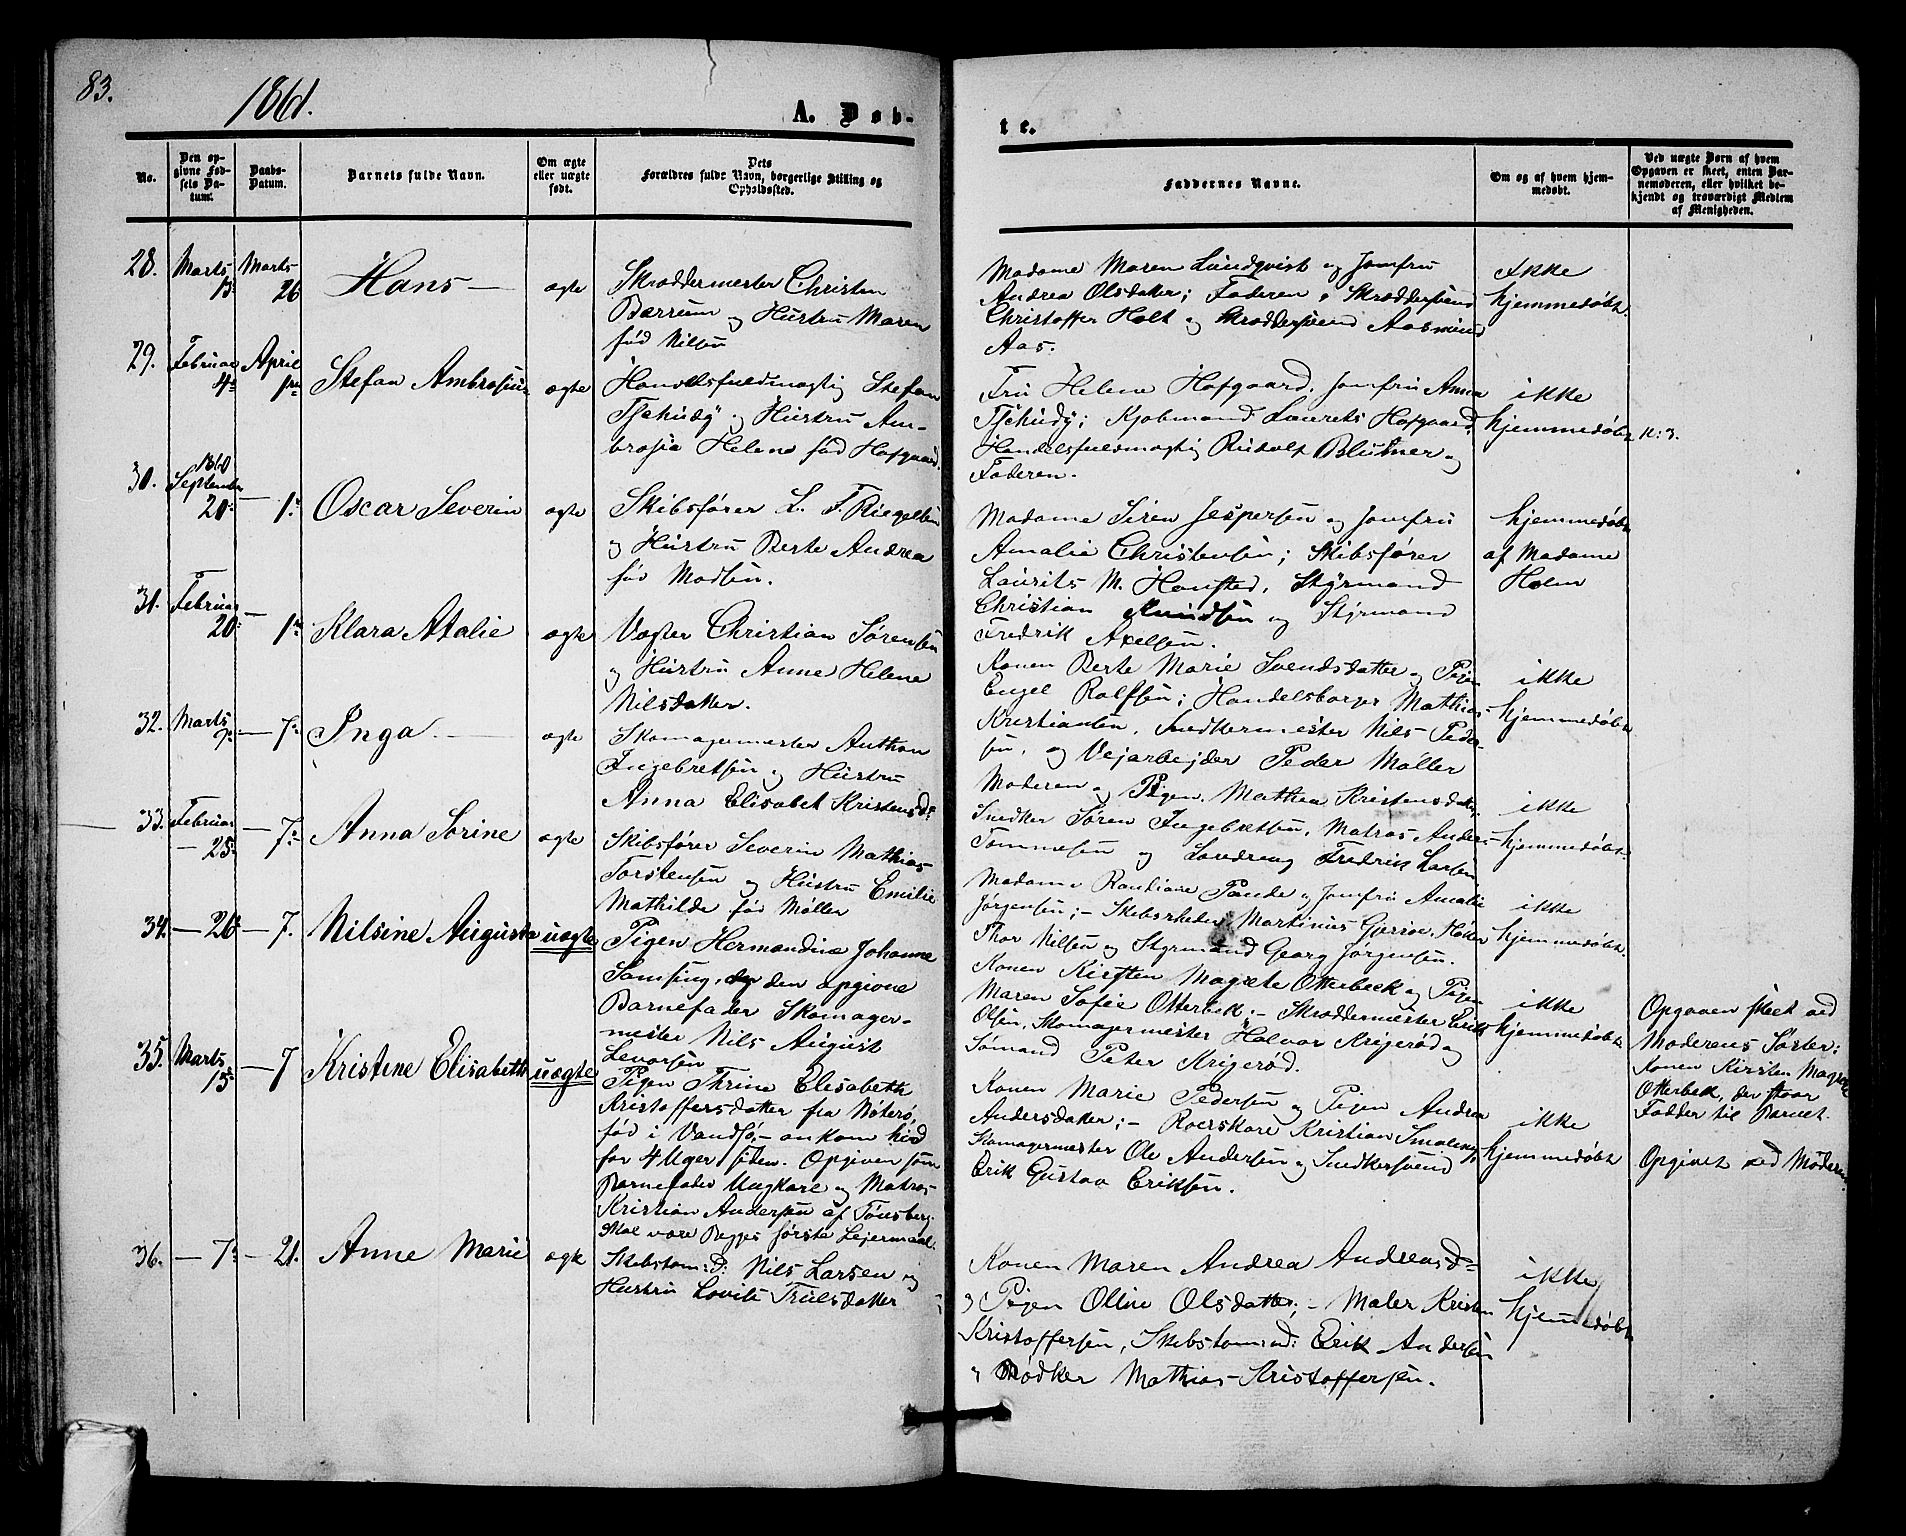 83.
1861.
A. Døb-
te.
No.
Den opgivne Fødsels Datum.
Daabs-Datum.
Barnets fulde Navn.
Om ægte eller uægte født.
Dets Forældres fulde Navn, borgerlige Stilling og Opholdssted.
Faddernes Navne.
Om og af hvem hjemmedøbt.
Ved uægte Børn af hvem Opgaven er skeet, enten Barnemoderen, eller hvilket bekjendt og troværdigt Medlem af Menigheden.
28. Marts 13. Marts 26 Hans — ægte
Skræddermester Christen
Bærrum og Hustru Maren
fød Nilsen
Madame Maren Lundqvist og Jomfru
Andrea Olsdatter; Faderen, Skræddersvend
Christoffer Holt og Skræddersvend Aasmund
Aas.
Ikke
hjemmedøbt.
29. Februar 4de April 1ste Stefan Ambrosius ægte
Handelsfuldmægtig Stefan
Tschudy og Hustru Am-
brosia Helene fød Hofgaard.
Fru Helene Hofgaard, Jomfru Anna
Tschudy; Kjøbmand Laurets Hofgaard,
Handelsfuldmægtig Rudolf Blutner og
Faderen.
ikke
hjemmedøbt
n: 3.
30. 1860 September 20. — 1. Oscar Severin ægte
Skibsfører L. F. Riegelsen
og Hustru Berte Andrea
fød Madsen.
Madame Siren Jespersen og Jomfru
Amalie Christensen; Skibsfører
Laurits M. Hansted, Styrmand
Christian Knudsen og Styrmand
Fredrik Axelsen.
hjemmedøbt
af Madame
Holm
31. Februar 20. — 1. Klara Atalie ægte
Vægter Christian Sørensen
og Hustru Anne Helene
Nilsdatter.
Konen Berte Marie Svendsdatter og Pigen
Engel Rolfsen; Handelsborger Mathias
Kristiansen, Snedkermester Nils Peder-
sen, og Vejarbejder Peder Møller
ikke
hjemmedøbt
32. Marts — 7. Inga. — ægte
Skomagermester Anthon
Ingebretsen og Hustru
Anna Elisabet Kristensd:
Moderen og Pigen Mathea Kristensdatter,
Snedker Søren Ingebretsen, Matros Anders
Tommesen og Losdreng Fredrik Larsen
ikke
hjemmedøbt
33. Februar — 25. — 7. Anna Sorine ægte
Skibsfører Severin Mathias
Torstensen og Hustru Emilie
Mathilde fød Møller
Madame Pande og Jomfru Amalie
Jørgensen; — Skibsrheder Martinus Gjersøe,
Thor Nilsen og Styrmand Georg Jørgensen.
ikke
hjemmedøbt.
34. — 26. — 7. Nilsine Augusta uægte
Pigen Hermandine Johanne
Samsing, og den opgivne
Barnefader Skomager-
mester Nils August
Levorsen
Konen Kirsten Magrete Otterbeck og Pigen
Maren Sofie Otterbek; — Skræddermester Erik
Olsen, Skomagermester Halvor Krigerød og
Sømand Peter Krigerød.
ikke
hjemmedøbt
Opgaven skeet ved
Moderens Søster:
Konen Kirsten Magrete
Otterbek, der staar
Fadder til Barnet.
35. Marts 15. — 7 Kristine Elisabeth uægte
Pigen Thrine Elisabeth
Kristoffersdatter fra Nøterø,
fød i Vandsø, — ankom hid
for 4 Uger siden. Opgiven som
Barnefader Ungkarl og Matros
Kristian Andersen af Tønsberg.
Skal være Begges første Lejermaal.
Konen Marie Pedersen og Pigen Andrea
Andersdatter; — Roerskarl Kristian
Skomagermester Ole Andersen og Snedkersvend
Erik Gustav Eriksen.
ikke
hjemmedøbt
Opgivet ved Moderen.
36. — 7. — 21. Anne Marie ægte
Skibstom:d: Nils Larsen og
Hustru Lovise Trulsdatter
Konen Maren Andrea Andreasd=
og Pigen Oline Olsdatter; — Maler Kristen
Kristoffersen, Skibstom:nd: Erik Andersen
og Bødker Mathias Kristoffersen.
ikke
hjemmedøbt